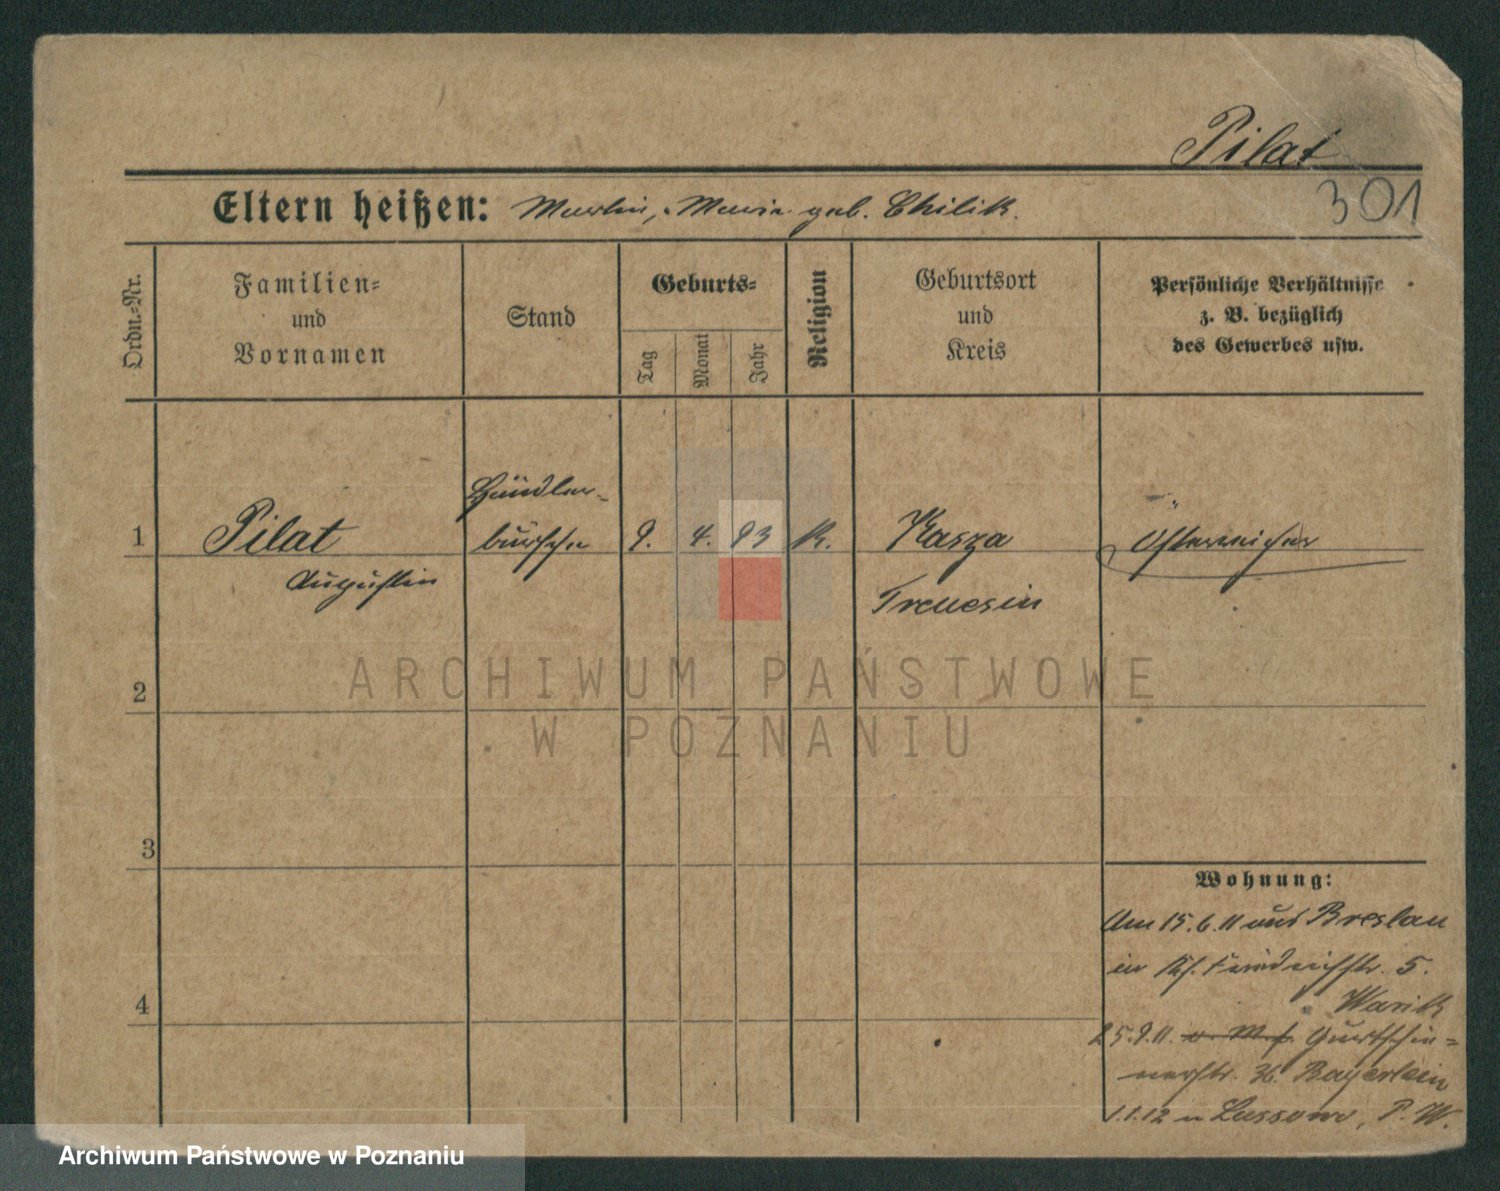 Pilat
301
Eltern heißen: Martin, Marie geb. Chilik.
Ordn.-Nr.
Familien-
und
Vornamen
Stand
Geburts-
Tag
Monat
Jahr
Religion
Geburtsort
und
Kreis
Persönliche Verhältnisse
z. B. bezüglich
des Gewerbes usw.
1
Pilat
Augustin
Händler-
bursche
9. 4. 93
K.
Rasza
Trencsin
Österreicher
2
3
4
Wohnung:
Am 15.6.11 aus Breslau
in Friedrichstr. 5.
Warik
25.9.11.
36 Bayerlein
1.1.12 n Lussowo, P. W.
ARCHIWUM PAŃSTWOWE
W POZNANIU
Archiwum Państwowe w Poznaniu